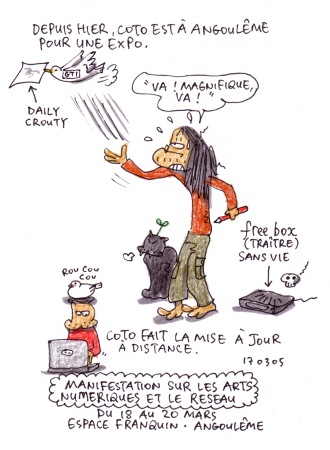 DEPUIS HIER, COTO EST À ANGOULÊME
POUR UNE EXPO.
GTI
"VA ! MAGNIFIQUE,
VA ! "
DAILY
CROUTY
free box
(TRAÎTRE)
SANS VIE
ROU COU
COU
COTO FAIT LA MISE À JOUR
À DISTANCE.
170305
MANIFESTATION SUR LES ARTS
NUMERIQUES ET LE RESEAU
DU 18 AU 20 MARS
ESPACE FRANQUIN - ANGOULÊME